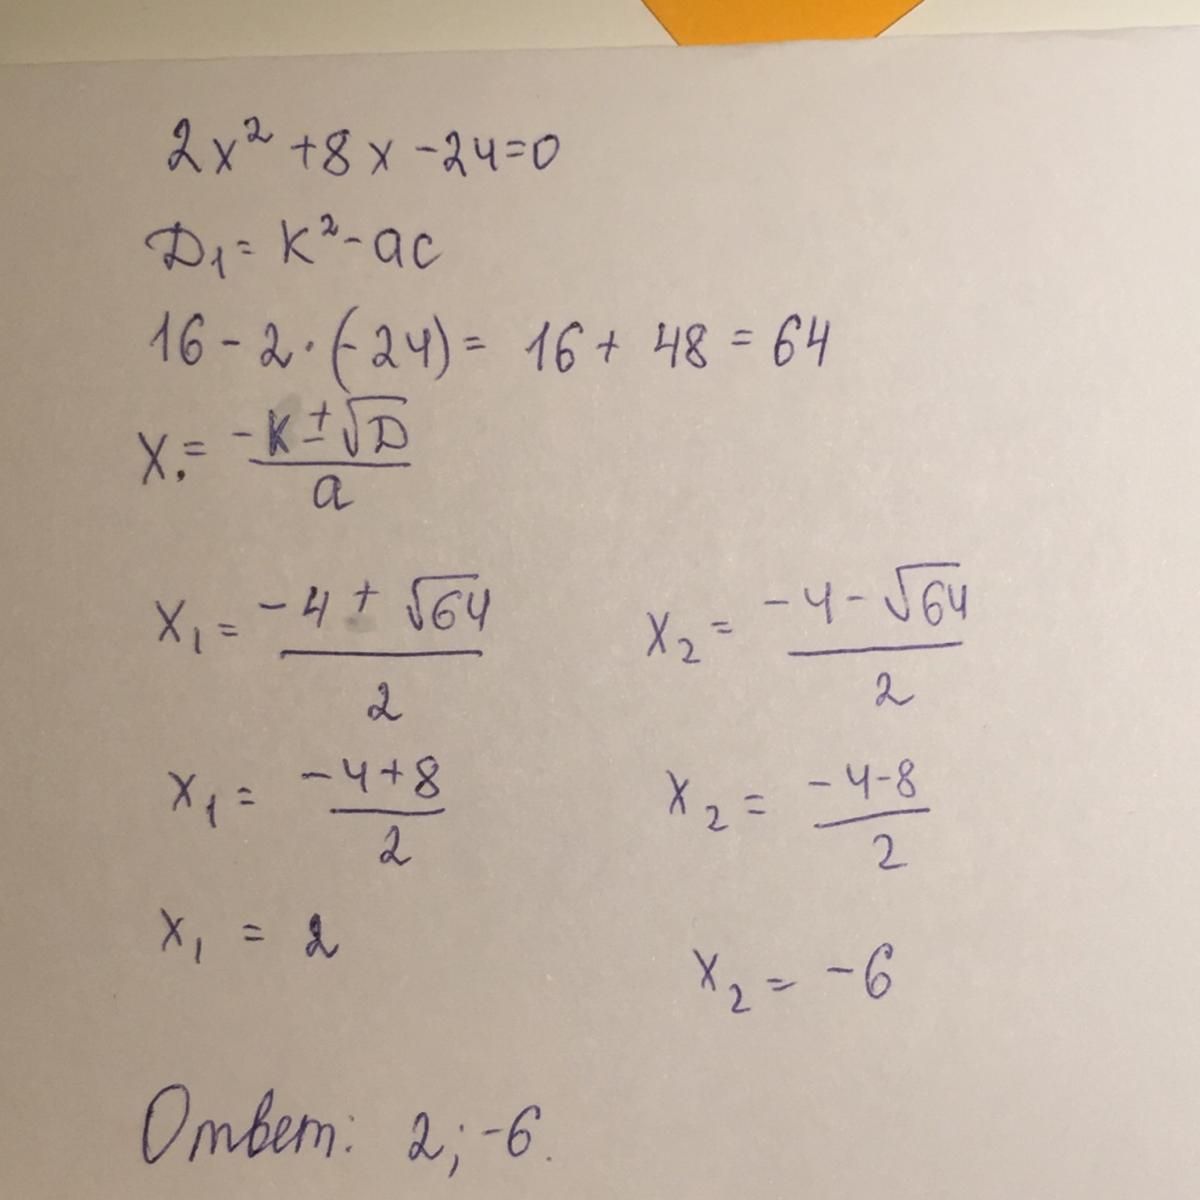 2x² + 8x - 24 = 0
D₁ = k² - ac
16 - 2 · (-24) = 16 + 48 = 64
x. = (-k ± √D) / a
x₁ = (-4 + √64) / 2    x₂ = (-4 - √64) / 2
x₁ = (-4 + 8) / 2    x₂ = (-4 - 8) / 2
x₁ = 2    x₂ = -6
Ответ: 2; -6.